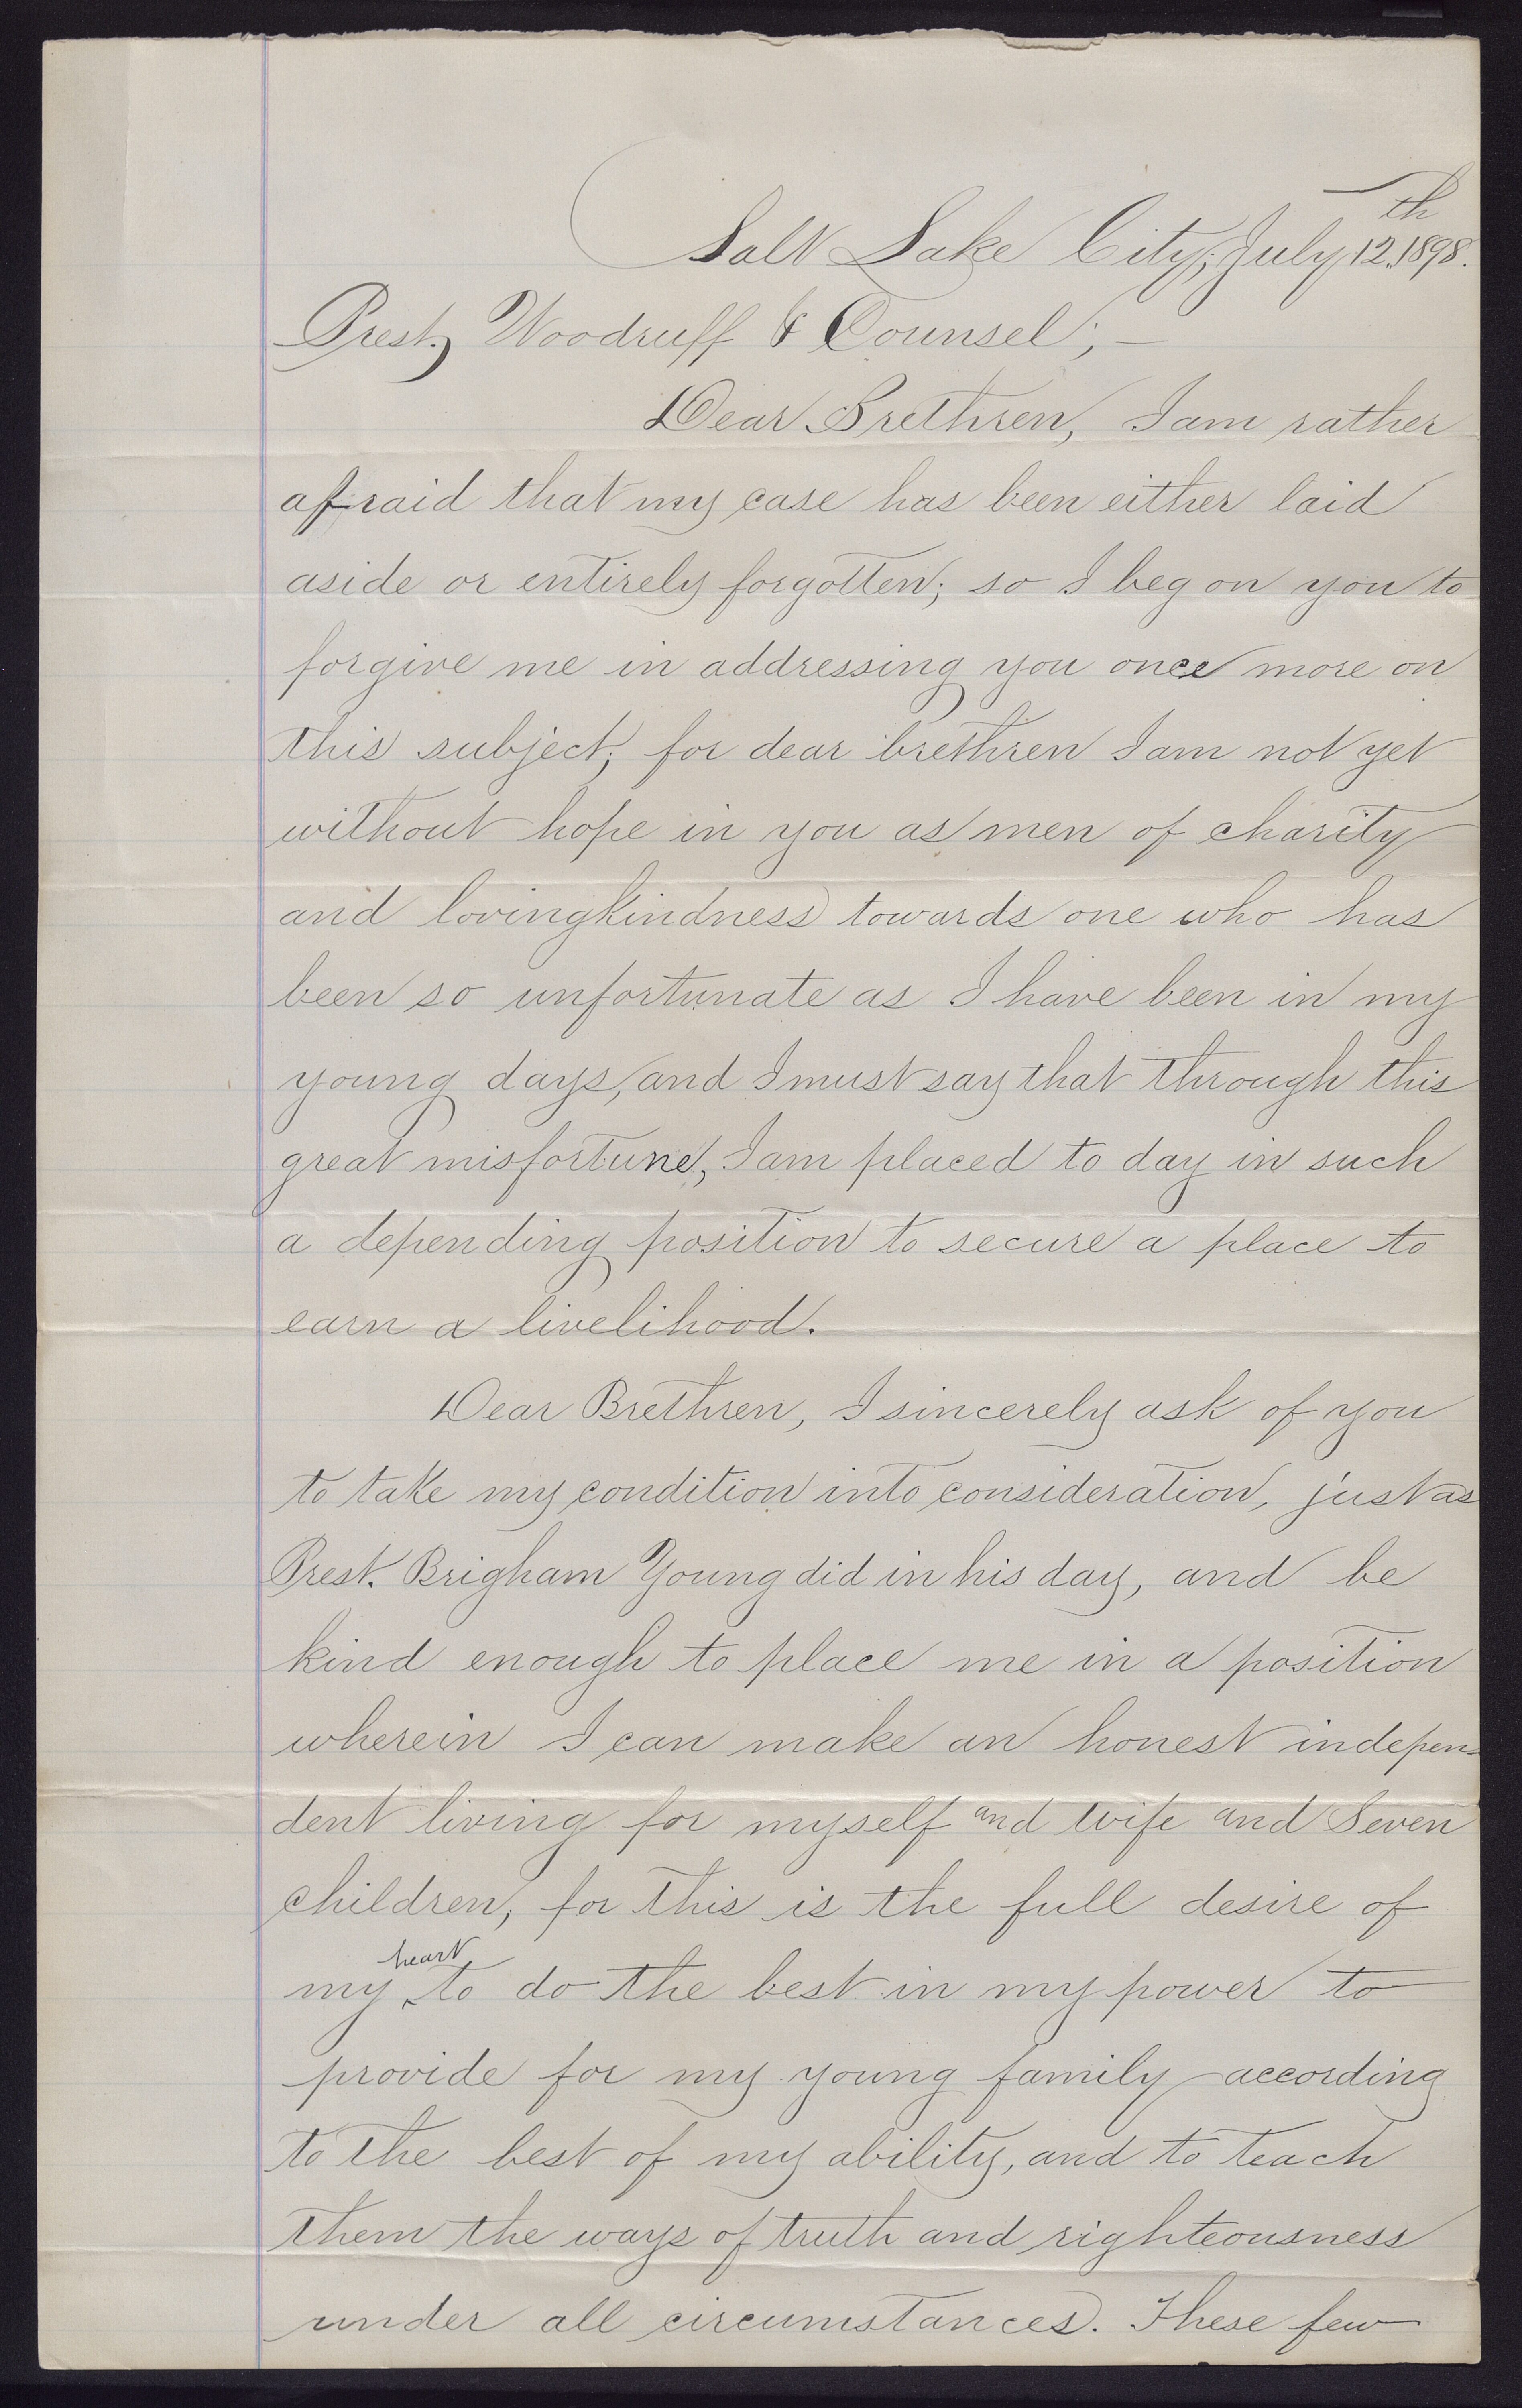 Salt Lake City, July 12th, 1898.
Prest. Woodruff & Counsel; —
Dear Brethren, I am rather
afraid that my case has been either laid
aside or entirely forgotten; so I beg on you to
forgive me in addressing you once more on
this subject; for dear brethren I am not yet
without hope in you as men of charity
and lovingkindness towards one who has
been so unfortunate as I have been in my
young days, and I must say that through this
great misfortune, I am placed to day in such
a depending position to secure a place to
earn a livelihood.
Dear Brethren, I sincerely ask of you
to take my condition into consideration, just as
Prest. Brigham Young did in his day, and be
kind enough to place me in a position
wherein I can make an honest indepen-
dent living for myself and wife and Seven
children, for this is the full desire of
my heart to do the best in my power to
provide for my young family according
to the best of my ability, and to teach
them the ways of truth and righteousness
under all circumstances. These few